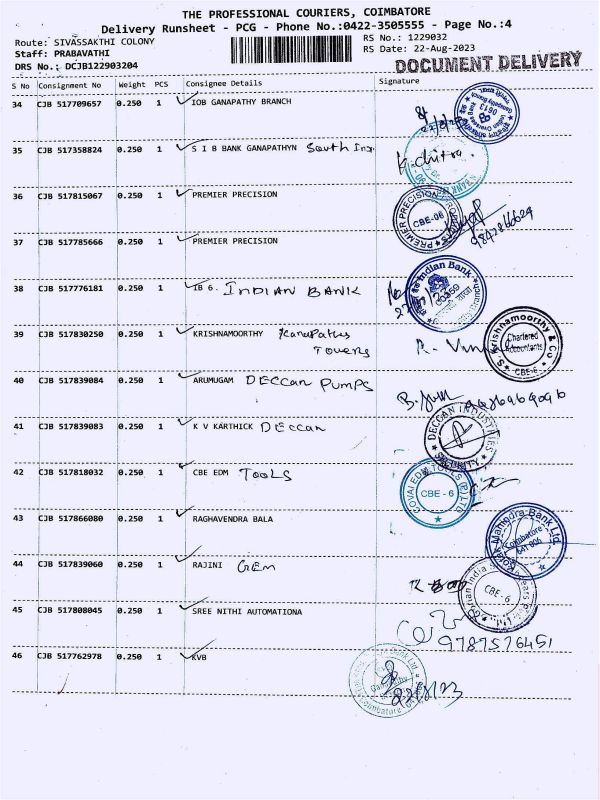 THE PROFESSIONAL COURIERS, COIMBATORE
Delivery Runsheet - PCG - Phone No.:0422-3505555 - Page No.:4
Route: SIVASSAKTHI COLONY
RS No.: 1229032
Staff: PRABAVATHI
RS Date: 22-Aug-2023
DRS No.: DCJB122903204
DOCUMENT DELIVERY
S No Consignment No Weight PCS Consignee Details Signature
34 CJB 517709657 0.250 1 IOB GANAPATHY BRANCH
35 CJB 517358824 0.250 1 S I B BANK GANAPATHYN South Ind K. chitra
36 CJB 517815067 0.250 1 PREMIER PRECISION
PREMIER PRECISION
CBE-06
37 CJB 517785666 0.250 1 PREMIER PRECISION
38 CJB 517776181 0.250 1 IB 6. INDIAN BANK
Indian Bank
39 CJB 517830250 0.250 1 KRISHNAMOORTHY
Towers
S. Krishnamoorthy & Co
Chartered
Accountants
CBE-6
40 CJB 517839084 0.250 1 ARUMUGAM DECCAN PUMPS
41 CJB 517839083 0.250 1 K V KARTHICK Deccan
DECCAN INDUSTRIES
SECURITY
42 CJB 517818032 0.250 1 CBE EDM TOOLS
COVAI EDM TOOLS (P) LTD
CBE - 6
43 CJB 517866080 0.250 1 RAGHAVENDRA BALA
Kotak Mahindra Bank Ltd.
Coimbatore
641 006
44 CJB 517839060 0.250 1 RAJINI GEM
CBE - 6
45 CJB 517808045 0.250 1 SREE NITHI AUTOMATIONA
9787576451
46 CJB 517762978 0.250 1 KVB
22/8/23